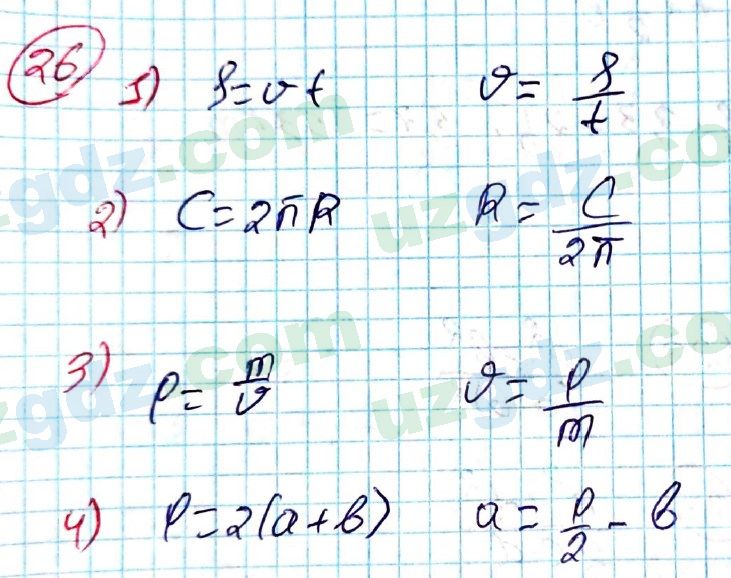 26
1) S=vt v= S/t
2) C=2πR R= C/2π
3) ρ= m/v v= ρ/m
4) P=2(a+b) a= P/2 - b
uzgdz.com
uzgdz.com
uzgdz.com
uzgdz.com